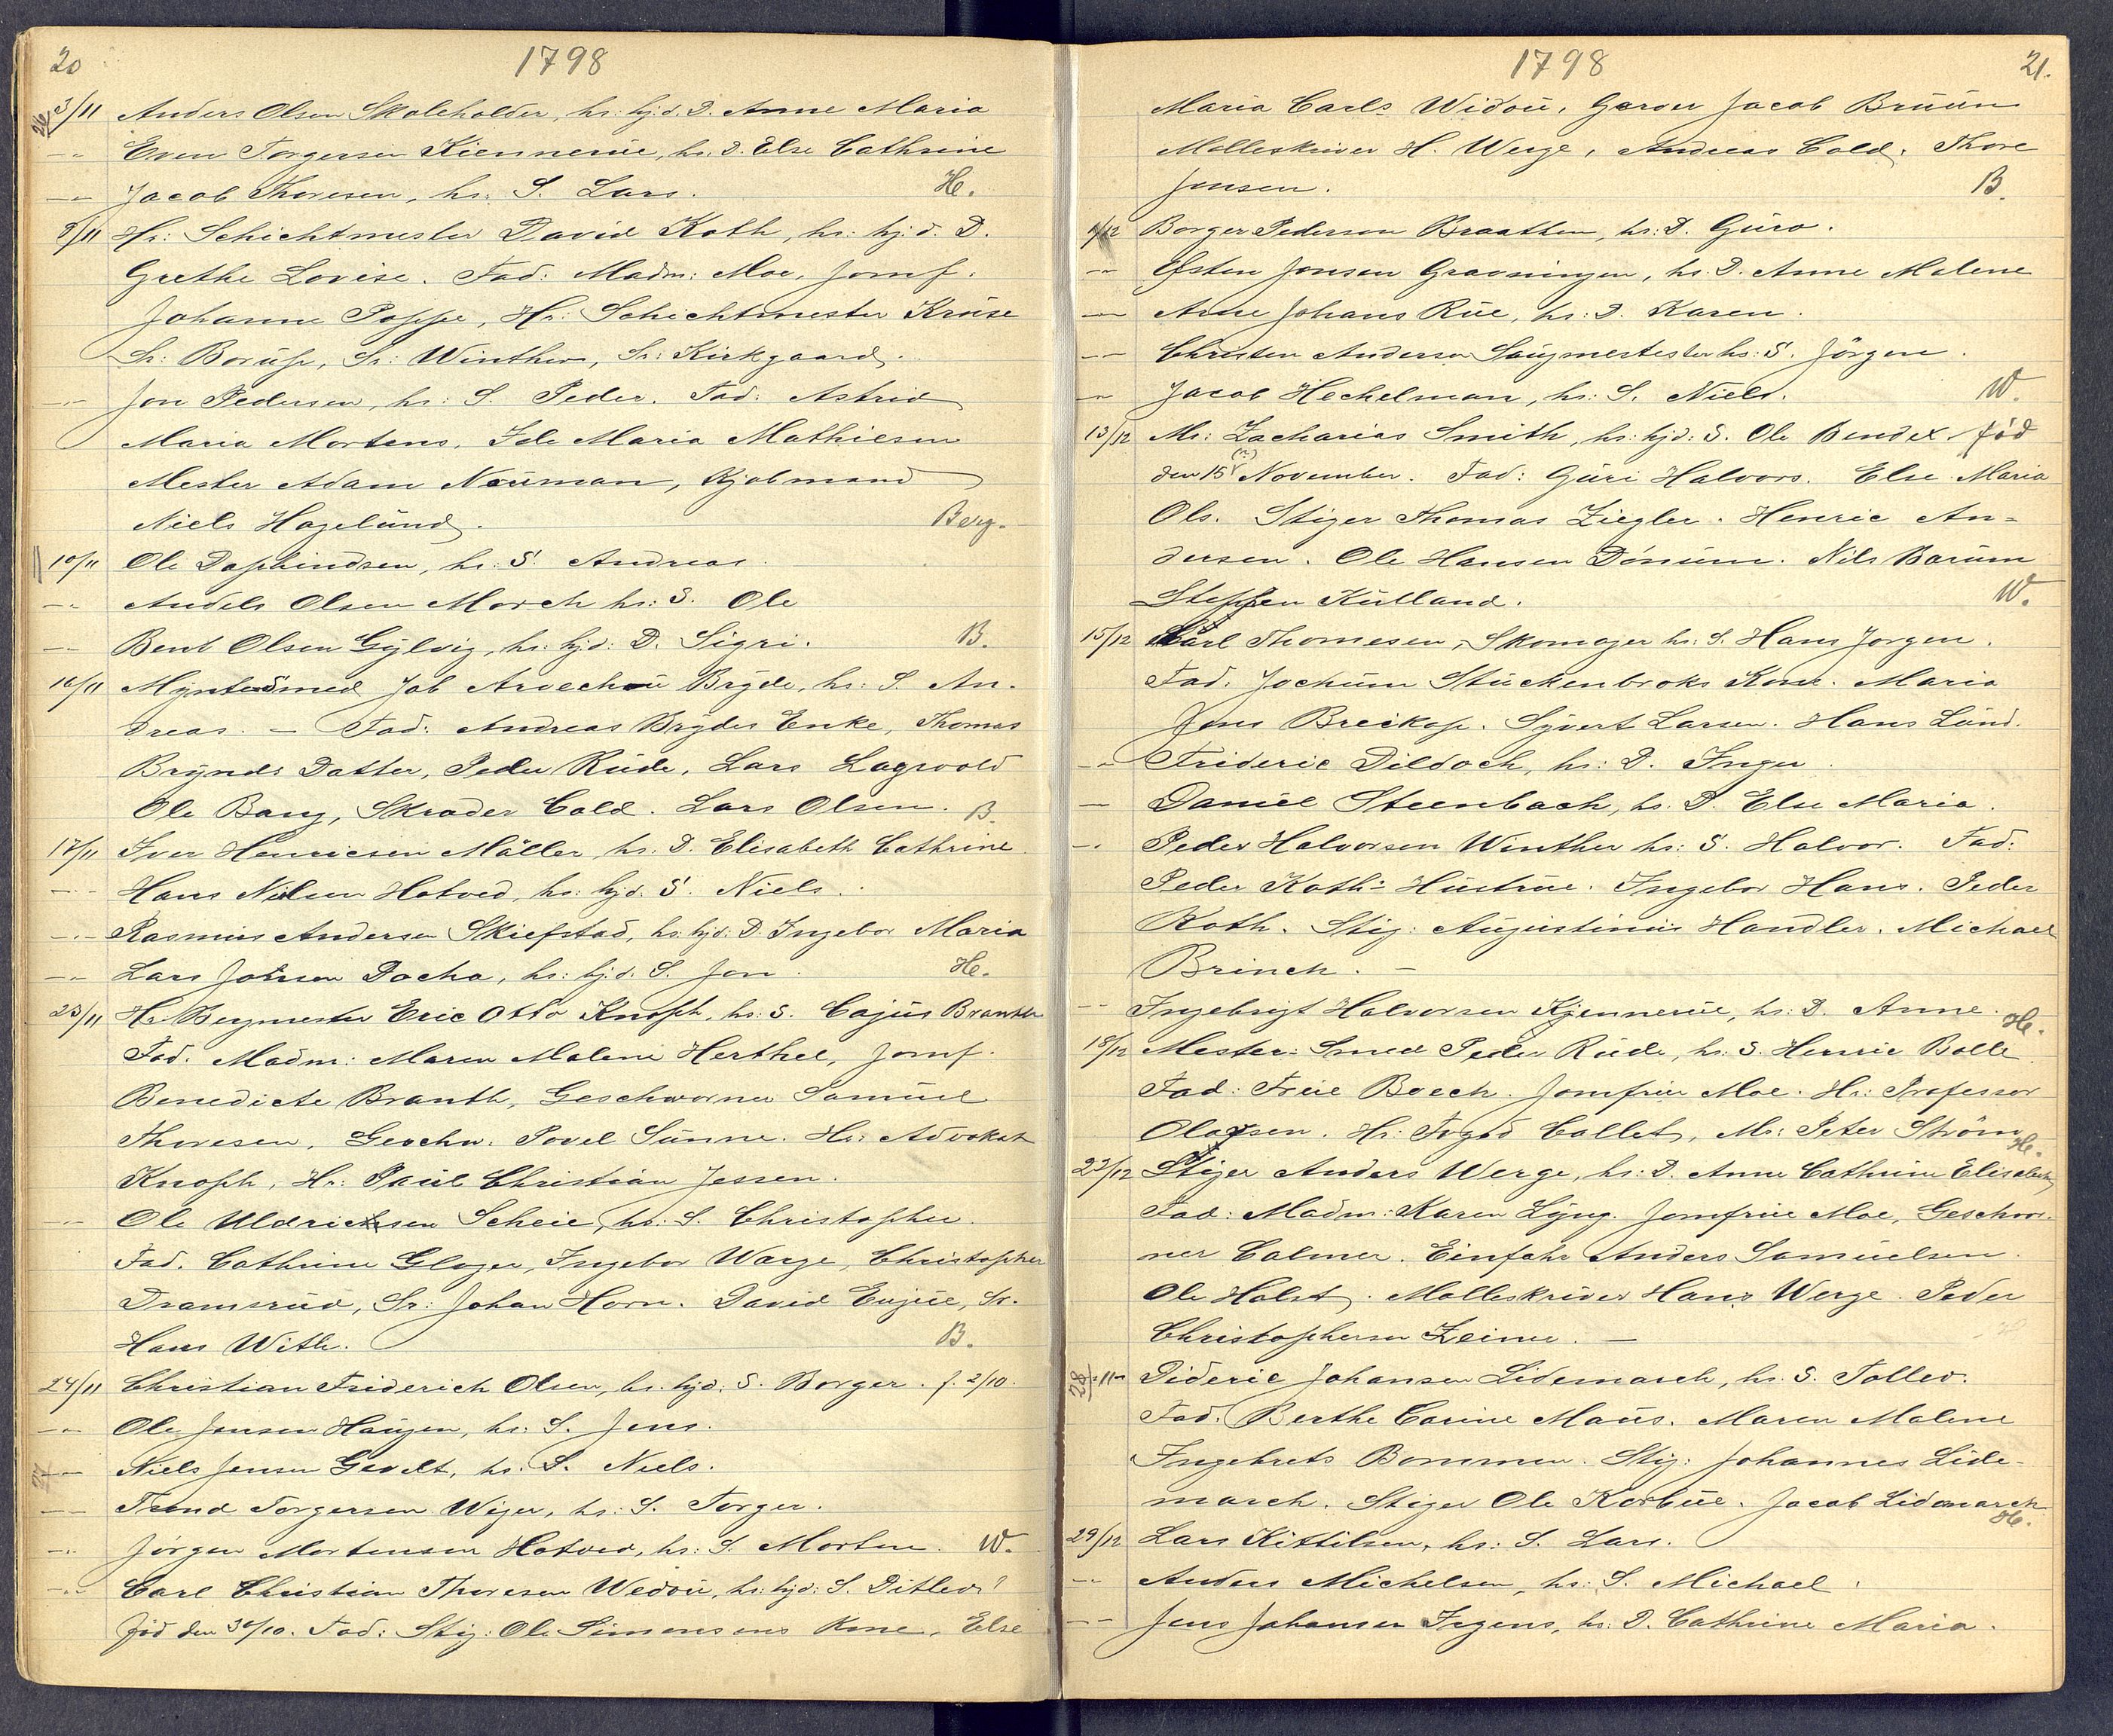 20
1798
26
3/11 Anders Olsen Skoleholder, hs: hj.d. D. Anne Maria
-"- Even Torgersen Kiennerüe, hs. D. Else Cathrine
-"- Jacob Thoresen, hs: S. Lars. He.
9/11 Hr: Schichtmester David Koth, hs: hj.d. D.
Grethe Lovise. Fad: Madm: Moe, Jomf:
Johanne Poppe, Hr: Schichtmester Krüse
Sr: Borüp, Sr: Winther, Sr: Kirkgaard.
-"- Jon Pedersen, hs: S. Peder. Fad: Astrid
Maria Mortens, Ide Maria Mathiesen
Mester Adam Naüman, Kjøbmand
Niels Hagelünd. Berg.
10/11 Ole Daphindsen, hs: S. Andreas.
-"- Andels Olsen Morch hs: S. Ole
-"- Bent Olsen Gÿlvig, hs: hjd: D. Sigri. B.
16/11 Mÿntsmed Job Brÿde, hs: S. An-
dreas. - Fad: Andreas Brÿdes Enke, Thomas
Brÿnds Datter, Peder Rüde, Lars Lagvold
Ole Bang, Skrader Cold. Lars Olsen. B.
17/11 Iver Henricsen Möller, hs. D. Elisabeth Cathrine.
-"- Hans Nilsen Hotved, hs: hj.d. S. Niels.
-"- Rasmüs Andersen Skiefstad, hs: hjd: D. Ingebor Maria
-"- Lars Jonsen Pocha, hs: hj.d. S. Jon. He.
23/11 Hr. Bergmester Eric Otto Knoph, hs: S. Cajüs Branth
Fad. Madm: Maren Malene Herthel, Jomf.
Benedicte Branth, Geschworner Samüel
Thoresen, Geschw. Povel Sünne. Hr: Advokat
Knoph, Hr: Paül Christian Jessen.
-"- Ole Uldricksen Scheie, hs: S. Christopher.
Fad. Cathrine Gloger, Ingebor Warge, Christopher
Dramsrüd, Sr: Johan Horn. David Eujüe, Sr.
Hans With. B.
24/11 Christian Friderich Olsen, hs. hjd: S. Borger. f. 2/10.
-"- Ole Jensen Haügen, hs: S. Jens.
27
-"- Niels Jensen Gevelt, hs: S. Niels.
-"- Trond Torgersen Wijer, hs: S. Torger.
-"- Jörgen Mortensen Hotved, hs: S. Morten. W.
-"- Carl Christian Thoresen Wedoü, hs: hjd: S. Ditlev?
fód den 30/10. Fad: Stig: Ole Simensens Kone, Else
1798
21.
Maria Carls Widoü, Garver Jacob Brüün
Molleskriver H. Werge, Andreas Cold, Thore
Jensen. B.
9/12 Borger Pederson Braatten, hs: D. Güro.
-"- Østen Jonsen Gravningen, hs. D. Anne Malene
-"- Arne Johans Rüe, hs: D. Karen.
-"- Christen Anderson Saügmestester hs: S. Jörgen.
-"- Jacob Hechelman, hs: S. Niels. W.
13/12 Mr: Zacharias Smith, hs: hjd: S. Ole Bendix. fód
den 15 (?) November. Fad: Güri Halvors. Else Maria
Ols. Stiger Thomas Ziegler. Henric An=
dersen. Ole Hansen Dónüm. Nils Barüm
Steffen Kütland. W.
15/12 Carl Thomesen, Skomager hs: S. Hans Jorgen.
Fad. Jochüm Stückenbroks Kone. Maria
Jens Breikop. Sÿvert Larsen. Hans Lünd.
-"- Frideric Dildoch, hs: D. Inger.
- Daniel Steenbach, hs. D. Else Maria.
-"- Peder Halvorsen Winther hs: S. Halvor. Fad:
Peder Koth's Hüstrüe. Ingebor Hans. Peder
Koth. Stig: Aügüstiniüs Handler. Michael
Brinch. -
-"- Ingebrigt Halvorsen Kjennerüe, hs: D. Anne. He.
18/12 Mester: Smed Peder Rüde, hs: S. Henric Bolle.
Fad: Früe Boeck. Jomfrue Moe. Hr: Professor
Olavsen. Hr: Fogd Collet, Mr: Peter Ström He.
23/12 Stiger Anders Werge, hs: D. Anne Cathrine Elisabeth
Fad: Madm: Karen Lÿng. Jomfrüe Moe, Geschwor-
ner Colmer. Einfahr Anders Samüelsen.
Ole Holst. Molleskriver Hans Werge. Peder
Christophersen Zeiner. -
28 -"- Dideric Johansen Lidemarch, hs. S. Tollev.
Fad. Berthe Carine Maüs. Maren Malene
Ingebrets Bommen. Stig: Johannes Lide-
march. Stiger Ole Korbüe. Jacob Lidemarch
He.
29/12 Lars Kittilsen, hs: S. Lars.
-"- Anders Michelsen, hs: S. Michael.
-"- Jens Johansen Irgens, hs: D. Cathrine Maria.